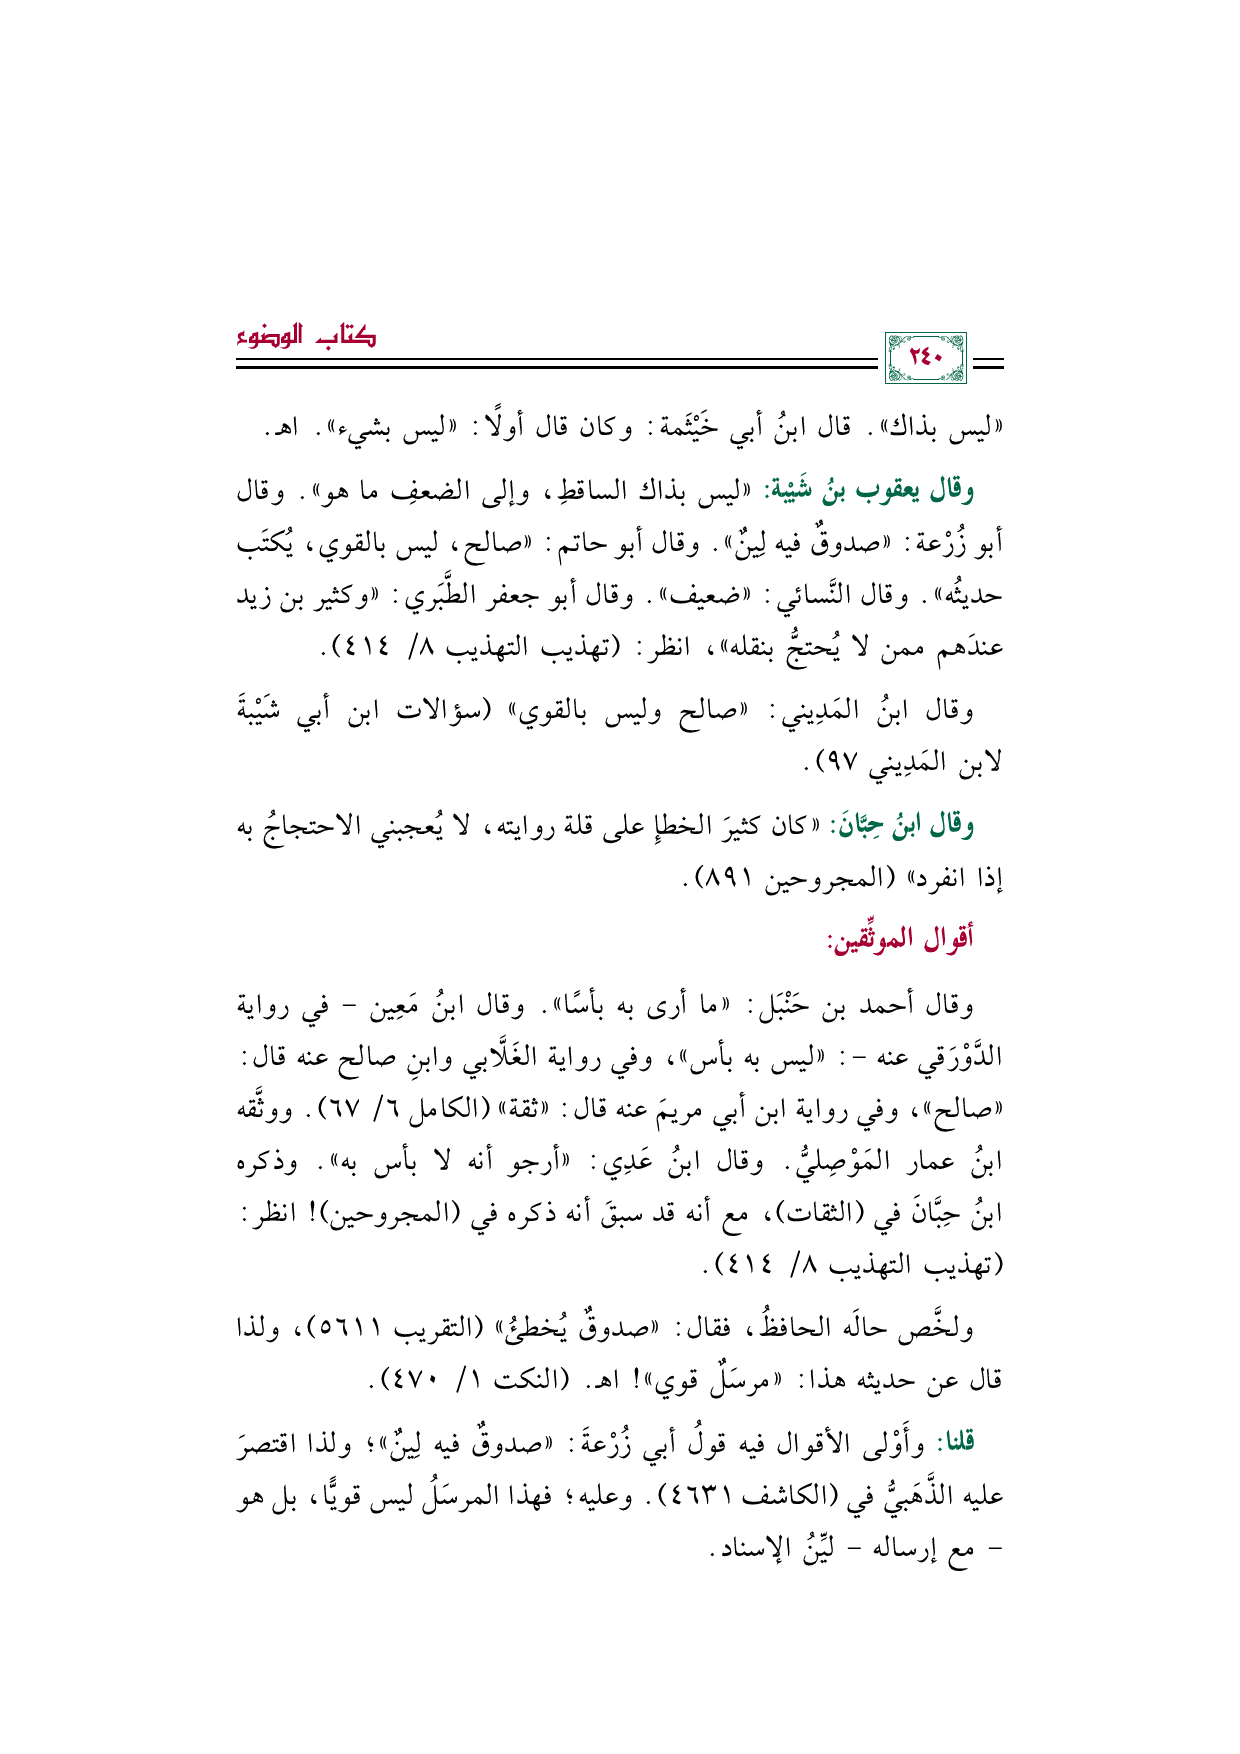 كتاب الوضوء
٢٤٠
«ليس بذاك». قال ابنُ أبي خَيْثَمة: وكان قال أولًا: «ليس بشيء». اهـ.
وقال يعقوب بنُ شَيْبة: «ليس بذاك الساقطِ، وإلى الضعفِ ما هو». وقال
أبو زُرْعة: «صدوقٌ فيه لِينٌ». وقال أبو حاتم: «صالح، ليس بالقوي، يُكتَب
حديثُه». وقال النَّسائي: «ضعيف». وقال أبو جعفر الطَّبَري: «وكثير بن زيد
عندَهم ممن لا يُحتجُّ بنقله»، انظر: (تهذيب التهذيب ٨/ ٤١٤).
وقال ابنُ المَدِيني: «صالح وليس بالقوي» (سؤالات ابن أبي شَيْبةَ
لابن المَدِيني ٩٧).
وقال ابنُ حِبَّانَ: «كان كثيرَ الخطإِ على قلة روايته، لا يُعجبني الاحتجاجُ به
إذا انفرد» (المجروحين ٨٩١).
أقوال الموثِّقين:
وقال أحمد بن حَنْبَل: «ما أرى به بأسًا». وقال ابنُ مَعِين - في رواية
الدَّوْرَقي عنه -: «ليس به بأس»، وفي رواية الغَلَّابي وابنِ صالح عنه قال:
«صالح»، وفي رواية ابن أبي مريمَ عنه قال: «ثقة» (الكامل ٦/ ٦٧). ووثَّقه
ابنُ عمار المَوْصِليُّ. وقال ابنُ عَدِي: «أرجو أنه لا بأس به». وذكره
ابنُ حِبَّانَ في (الثقات)، مع أنه قد سبقَ أنه ذكره في (المجروحين)! انظر:
(تهذيب التهذيب ٨/ ٤١٤).
ولخَّص حالَه الحافظُ، فقال: «صدوقٌ يُخطئُ» (التقريب ٥٦١١)، ولذا
قال عن حديثه هذا: «مرسَلٌ قوي»! اهـ. (النكت ١/ ٤٧٠).
قلنا: وأَوْلى الأقوال فيه قولُ أبي زُرْعةَ: «صدوقٌ فيه لِينٌ»؛ ولذا اقتصرَ
عليه الذَّهَبيُّ في (الكاشف ٤٦٣١). وعليه؛ فهذا المرسَلُ ليس قويًّا، بل هو
- مع إرساله - ليِّنُ الإسناد.